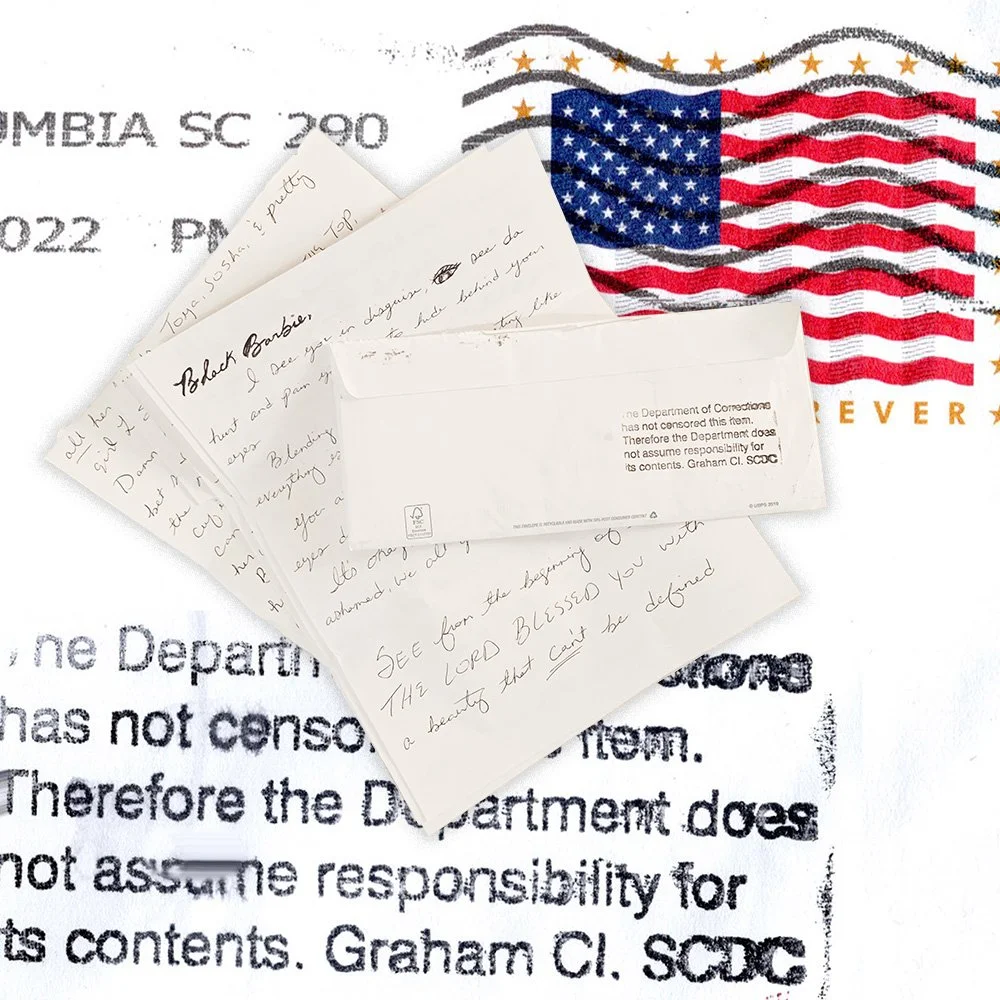 UMBIA SC 290
022 PM
REVER
Toya, Sosha, & pretty
Top,
all her
girl I
Damn
bet
the
can
her,
Black Barbie,
I see you in disguise, see da
hurt and pain to hide behind your
eyes
Blending
everything
You a
eyes
It's okay
ashamed, we all
SEE from the beginning of
THE LORD BLESSED YOU with
a beauty that can't be defined
ne Department of Corrections
has not censored this item.
Therefore the Department does
not assume responsibility for
its contents. Graham CI. SCDC
FSC
THIS ENVELOPE IS RECYCLABLE AND MADE WITH 30% POST CONSUMER CONTENT
© USPS 2019
ne Departm ctions
has not censo item.
Therefore the Department does
not assume responsibility for
ts contents. Graham CI. SCDC